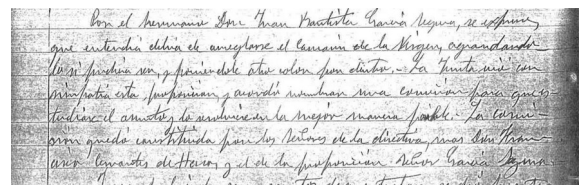 Por el hermano Don Juan Bautista García Segura, se expuso,
que entendia debia de arreglarse el Camarin de la Virgen, agrandando
lo si podria ser, y poniendole otro color por dentro.- La Junta vió con
simpatia esta proposicion, y acordó nombrar una comision para que es-
tudiase el asunto y lo resolviese de la mejor manera posible.- La comi-
sion quedó constituida por los Señores de la directiva, mas Don Fran-
cisco Cervantes de Haro, y el de la proposicion Señor García Segura.-